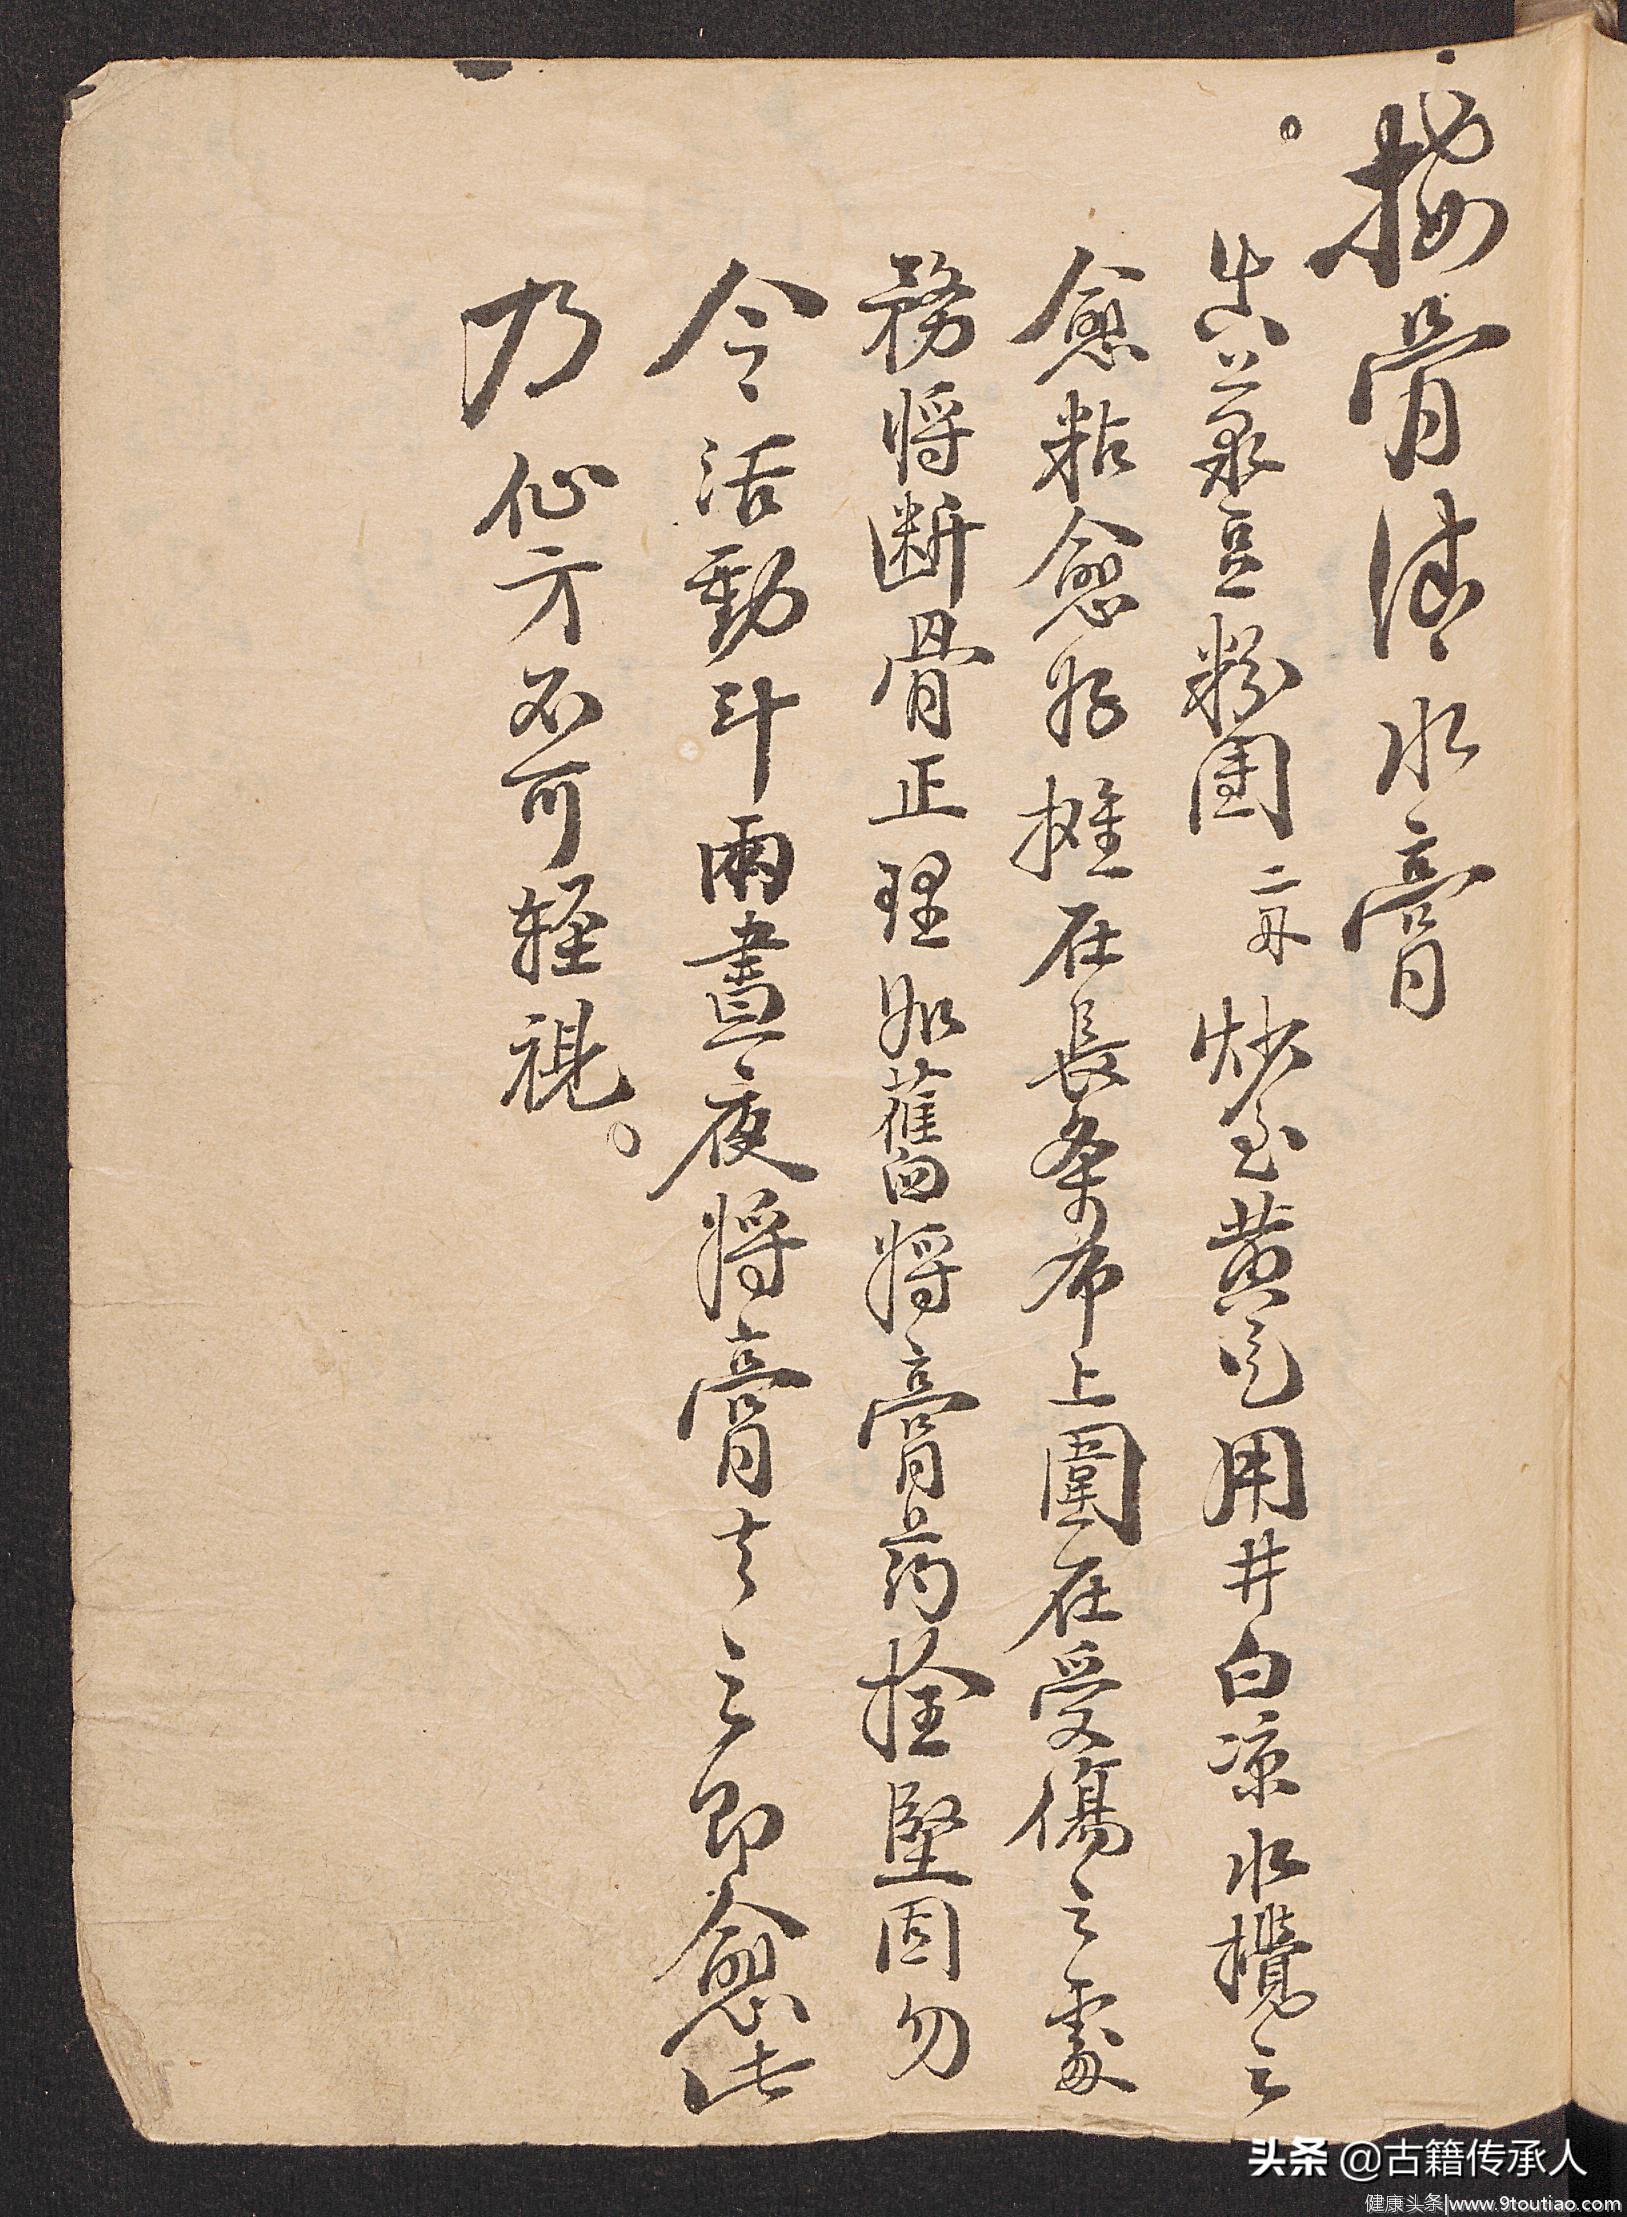 接骨清水膏
真菉豆粉團二両炒至黄色用井白凉水攪之
愈粘愈好攤在長条布上圍在受傷之處
務將断骨正理如舊將膏药拴堅固勿
令活動斗兩晝夜將膏去之即愈此
乃仙方不可輕視。
头条 @古籍传承人
健康头条|www.9toutiao.com